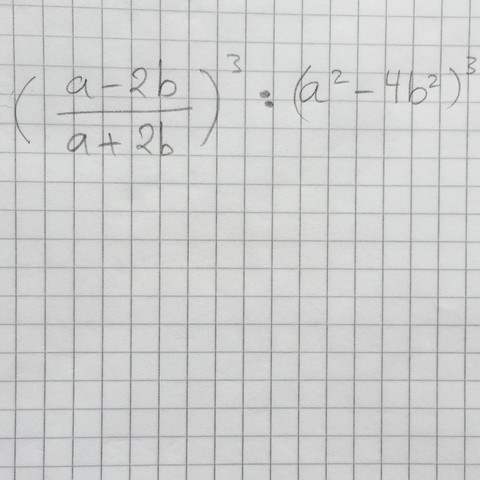 (a-2b/a+2b)³ : (a² - 4b²)³